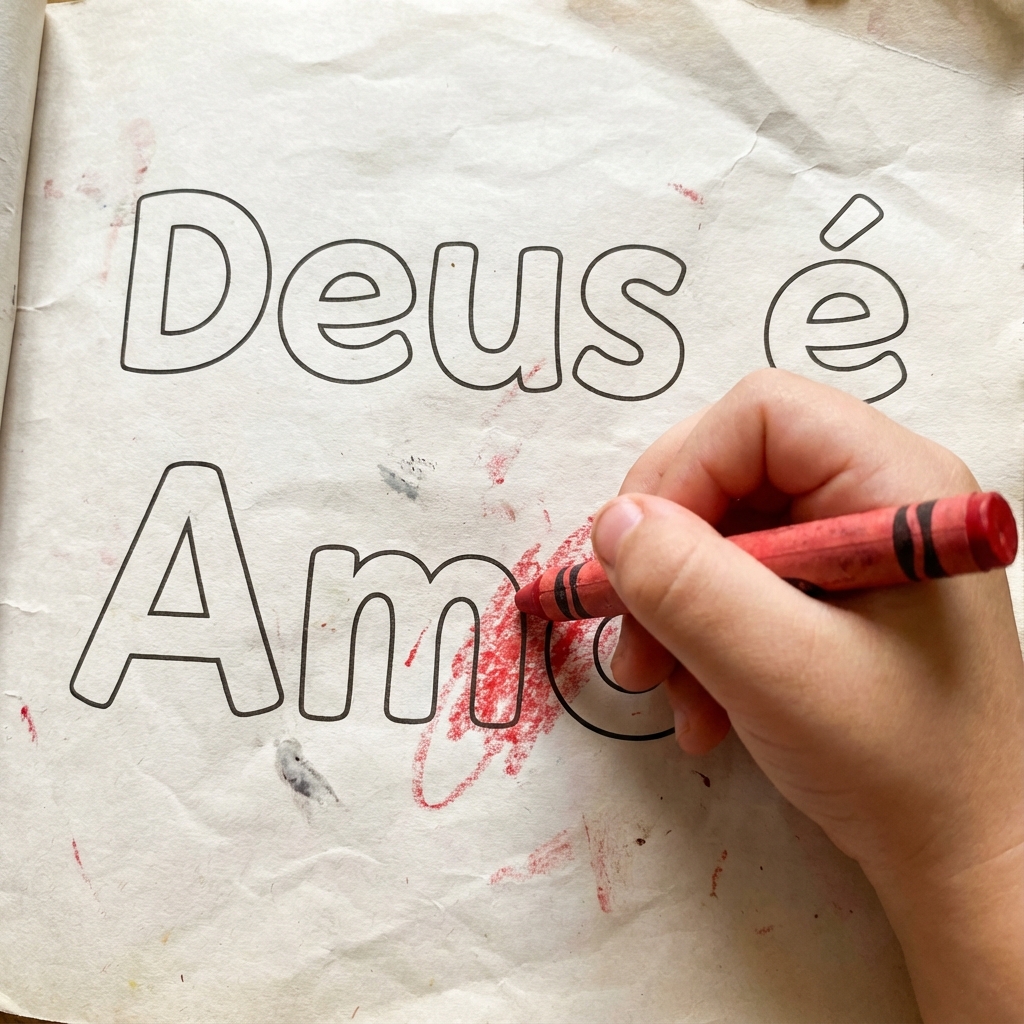 Deus é
Amo